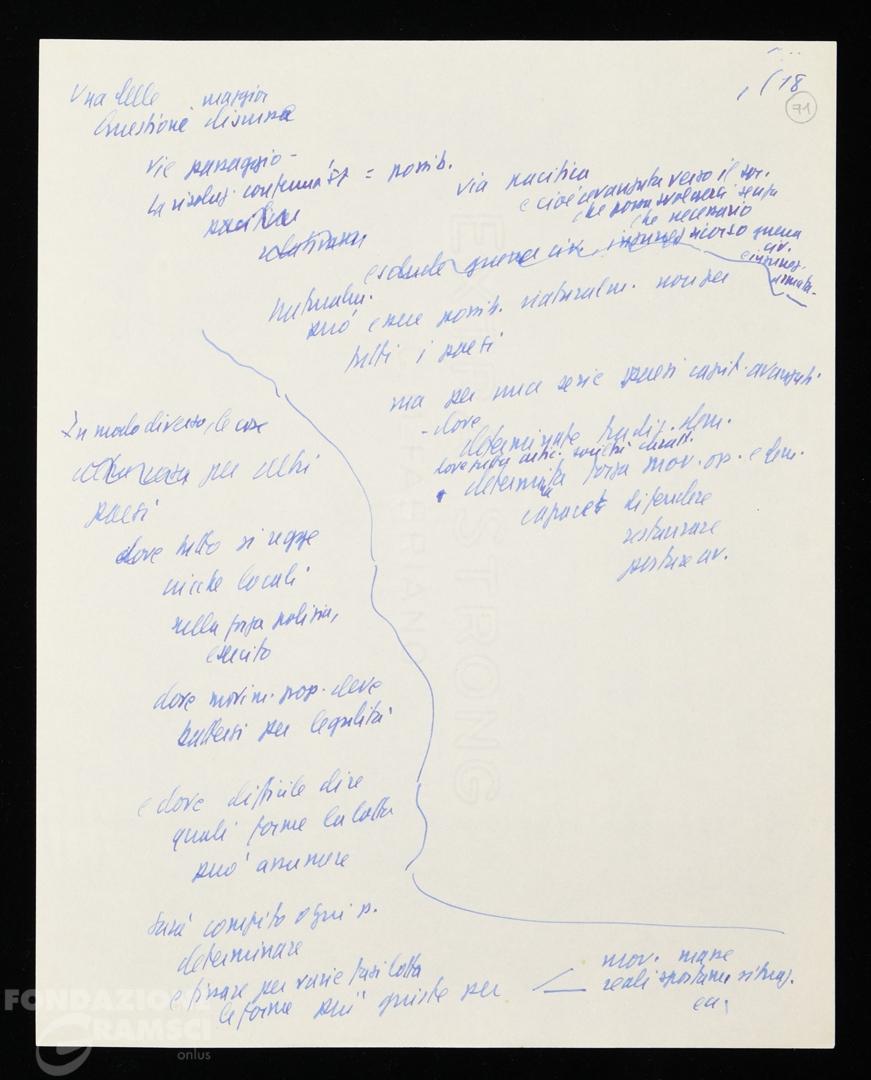 18
71
Una delle maggior
Questione discussa
vie passaggio -
La risoluz. conferma = possib.
pacifica
via pacifica
e cioè avanzata verso il soc.
che possa svolgersi senza
che necessario
ricorso guerra
civ.
e insurrez.
armata.
esclude guerra civ.
naturalm.
può essere possib. naturalm. non per
tutti i paesi
ma per una serie paesi capit. avanzati
- dove
determinate tradiz. dem.
dove
determinata forza mov. op. e dem.
capace di difendere
restaurare
portare av.
In modo diverso, le cose
per altri
paesi
dove tutto si regge
cricche locali
sulla forza polizia,
esercito
dove movim. pop. deve
battersi per legalità
e dove difficile dire
quali forme la lotta
può assumere
Sarà compito ogni p.
determinare
e fissare per varie fasi lotta
le forme più giuste per
mov. masse
reali spostam. situaz.
ecc.
EXTRA STRONG
FABRIANO
FONDAZIONE
GRAMSCI
onlus